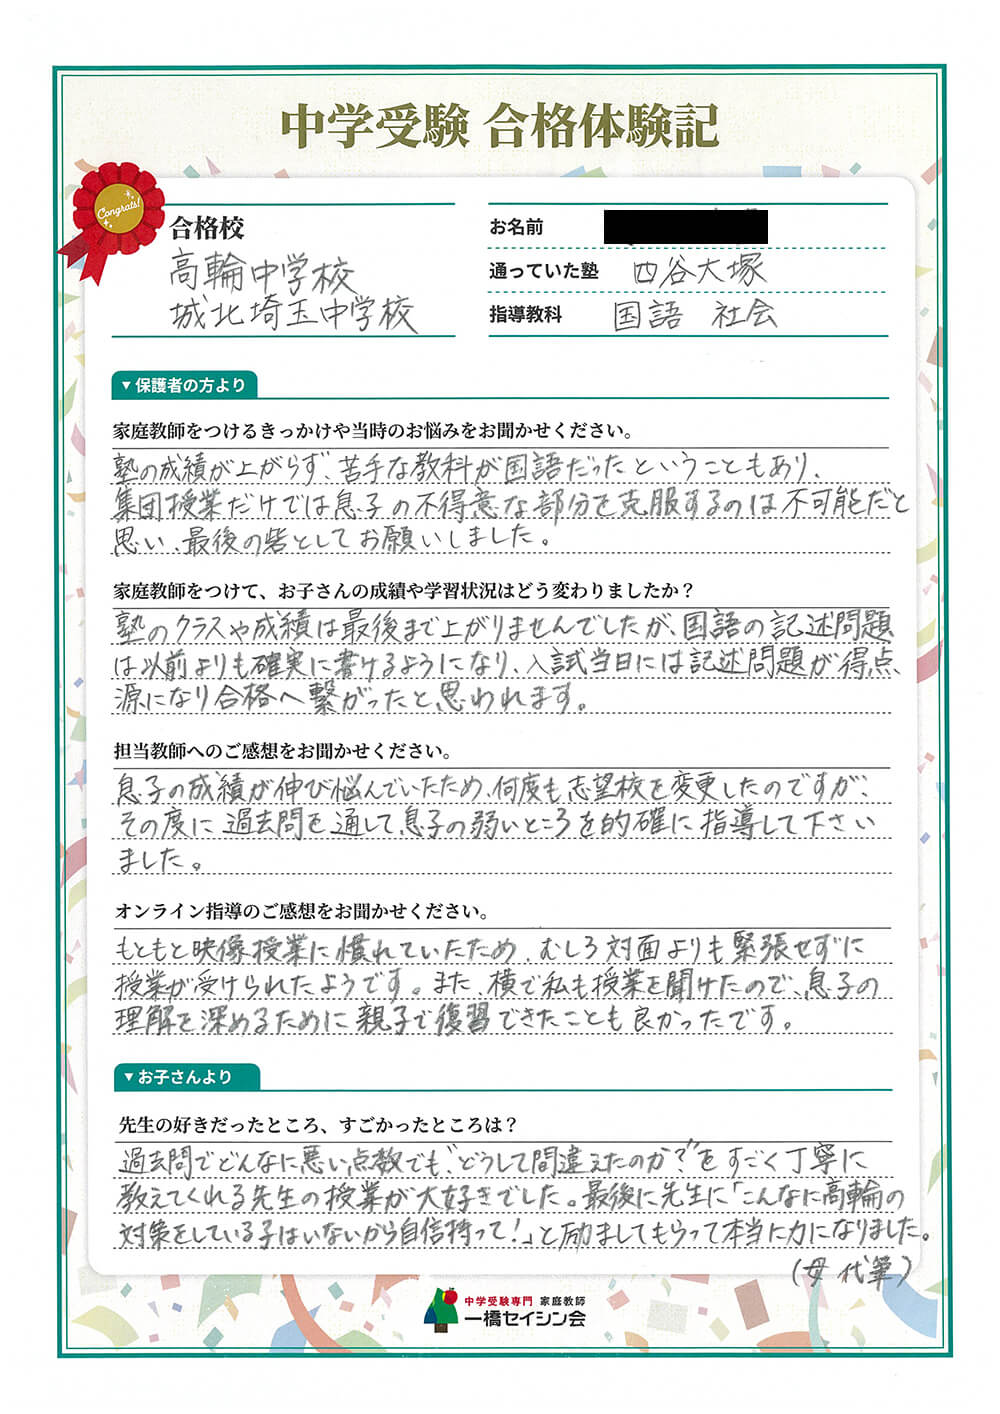 中学受験 合格体験記
Congrats!
合格校
高輪中学校
城北埼玉中学校
お名前
通っていた塾 四谷大塚
指導教科 国語 社会
▼保護者の方より
家庭教師をつけるきっかけや当時のお悩みをお聞かせください。
塾の成績が上がらず、苦手な教科が国語だったということもあり、
集団授業だけでは息子の不得意な部分を克服するのは不可能だと
思い、最後の砦としてお願いしました。
家庭教師をつけて、お子さんの成績や学習状況はどう変わりましたか？
塾のクラスや成績は最後まで上がりませんでしたが、国語の記述問題
は以前よりも確実に書けるようになり、入試当日には記述問題が得点
源になり合格へ繋がったと思われます。
担当教師へのご感想をお聞かせください。
息子の成績が伸び悩んでいたため、何度も志望校を変更したのですが、
その度に過去問を通して息子の弱いところを的確に指導して下さい
ました。
オンライン指導のご感想をお聞かせください。
もともと映像授業に慣れていたため、むしろ対面よりも緊張せずに
授業が受けられたようです。また、横で私も授業を聞けたので、息子の
理解を深めるために親子で復習できたことも良かったです。
▼お子さんより
先生の好きだったところ、すごかったところは？
過去問でどんなに悪い点数でも、“どうして間違えたのか？”をすごく丁寧に
教えてくれる先生の授業が大好きでした。最後に先生に「こんなに高輪の
対策をしている子はいないから自信持って！」と励ましてもらって本当に力になりました。
（母 代筆）
中学受験専門 家庭教師
一橋セイシン会